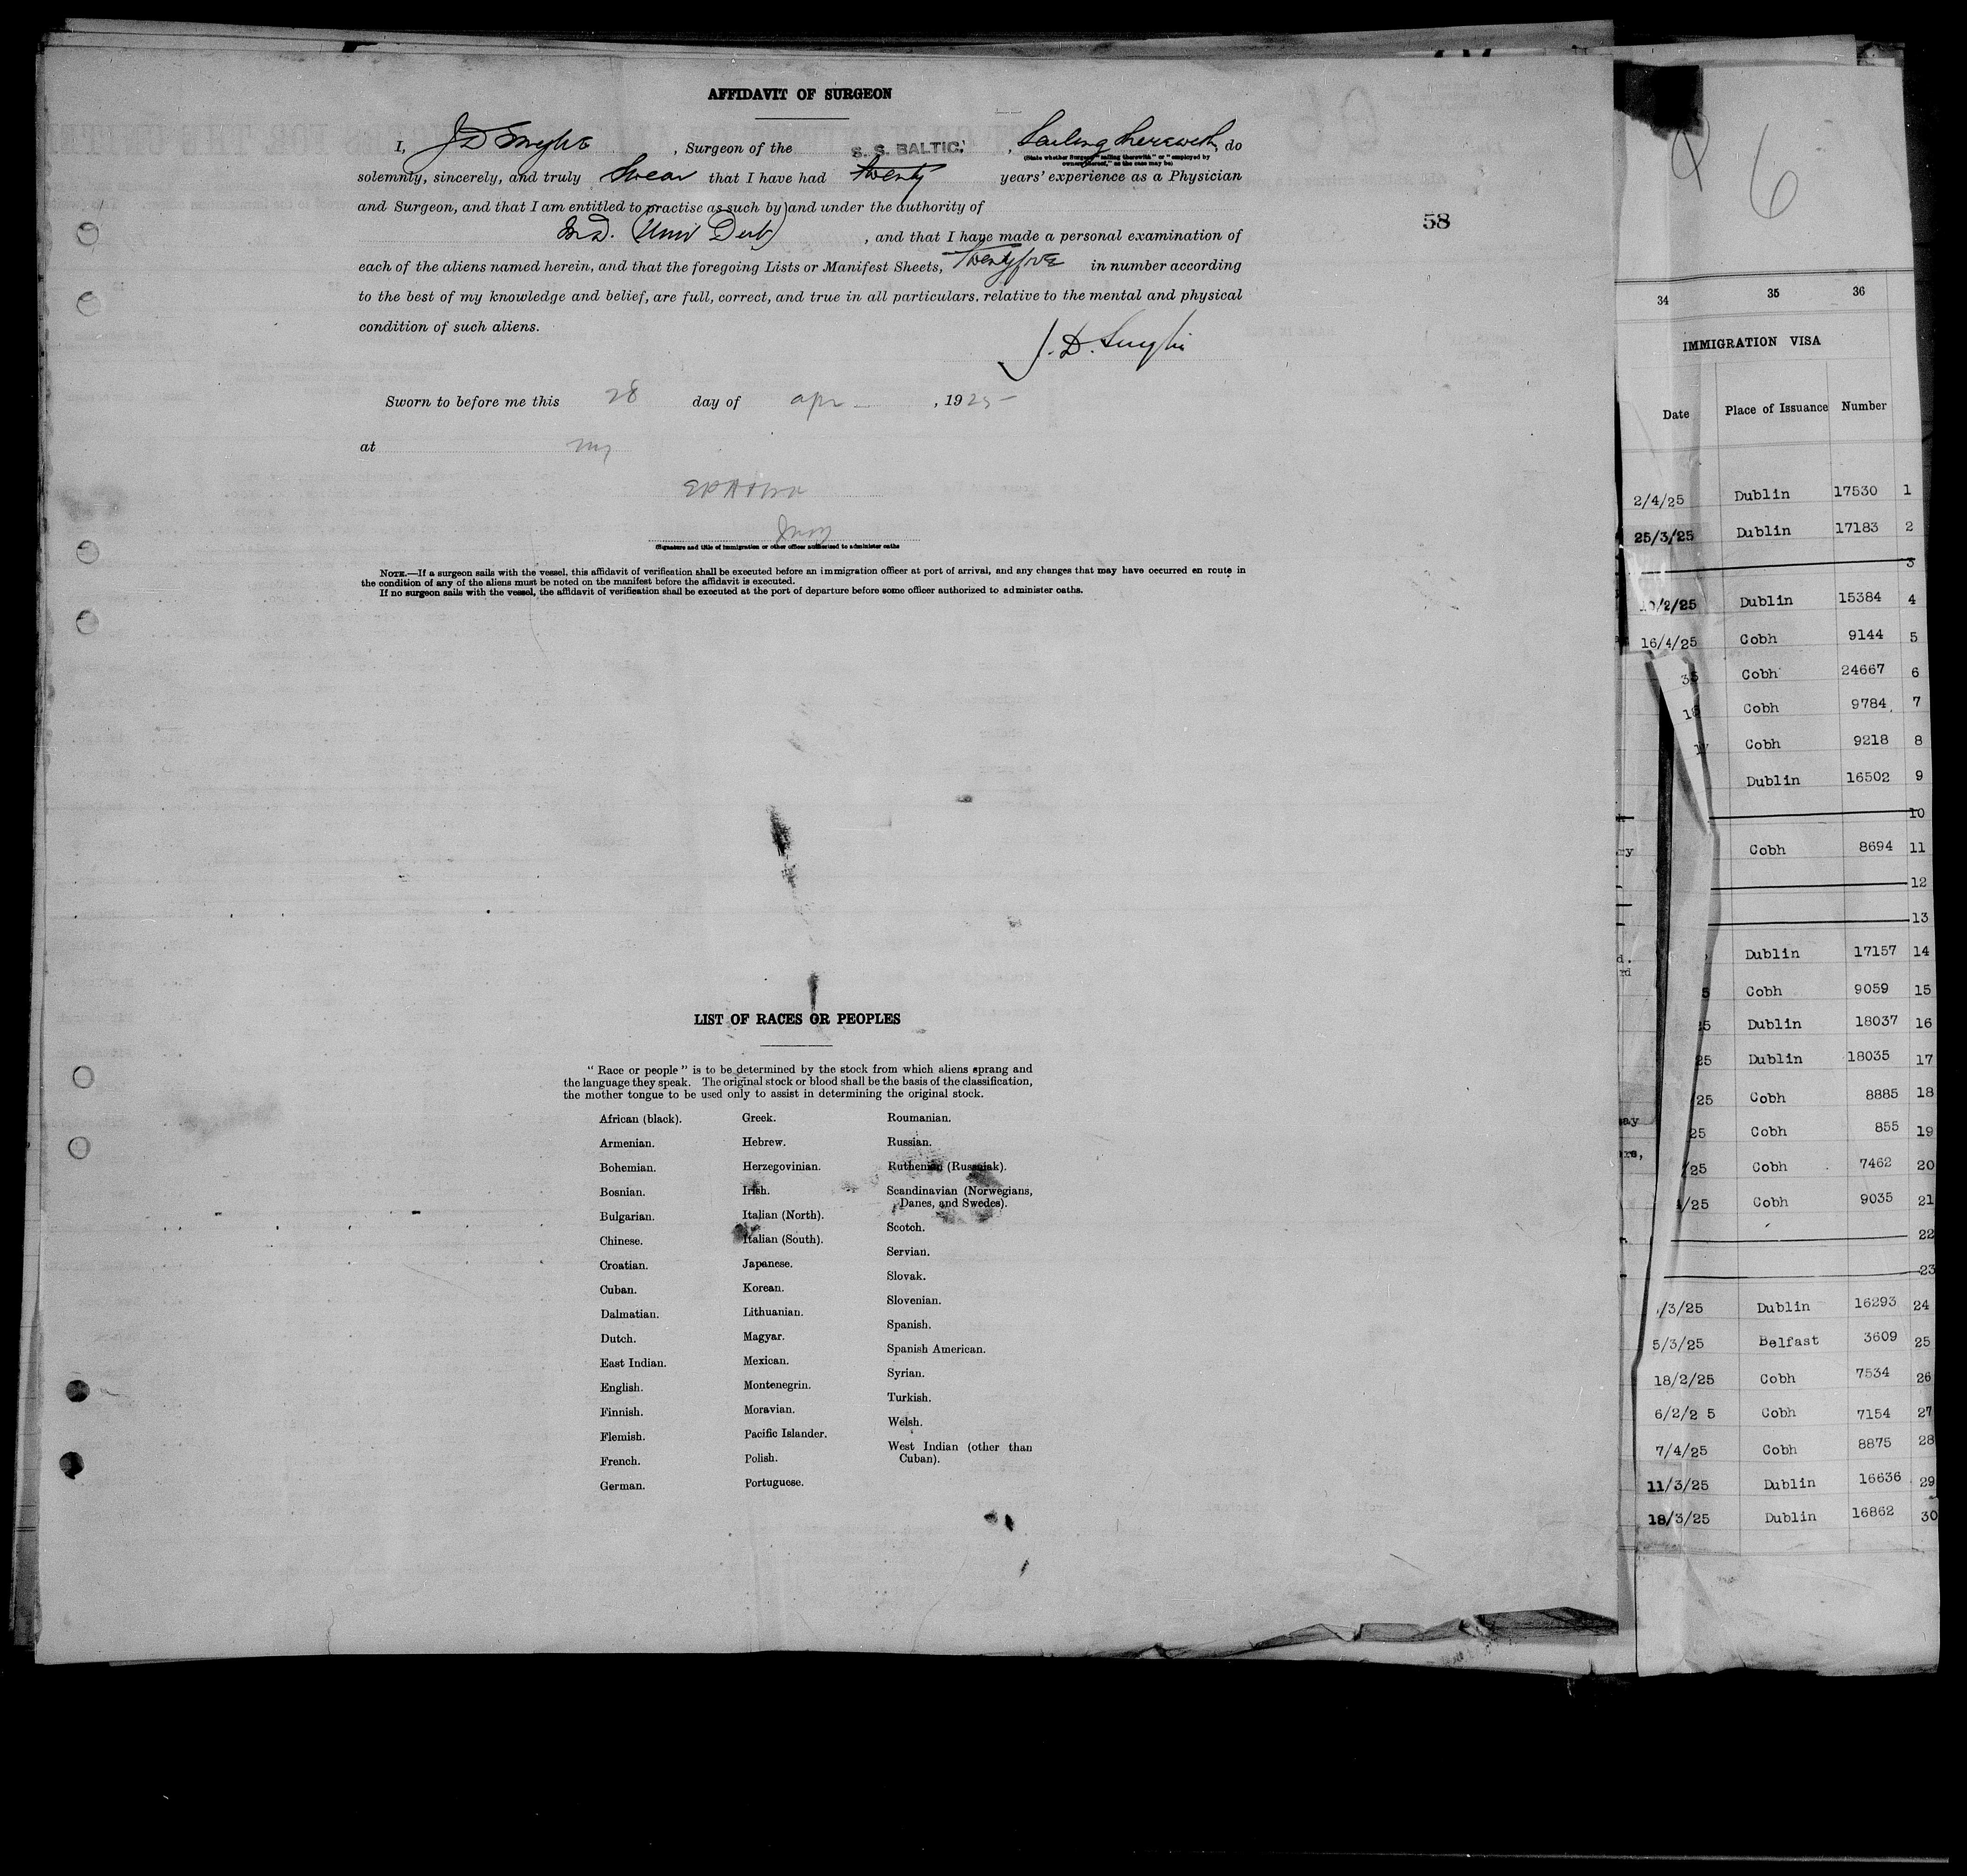 AFFIDAVIT OF SURGEON
I, J D Smyth , Surgeon of the S. S. BALTIC. , Sailing therewith, do
(State whether Surgeon "sailing therewith" or "employed by
owners thereof," as the case may be)
solemnly, sincerely, and truly swear that I have had twenty years' experience as a Physician
and Surgeon, and that I am entitled to practise as such by and under the authority of
, and that I have made a personal examination of
each of the aliens named herein, and that the foregoing Lists or Manifest Sheets, twenty five in number according
to the best of my knowledge and belief, are full, correct, and true in all particulars, relative to the mental and physical
condition of such aliens.
Sworn to before me this 28 day of apr , 1925
at ny
(Signature and title of immigration or other officer authorized to administer oaths
NOTE.—If a surgeon sails with the vessel, this affidavit of verification shall be executed before an immigration officer at port of arrival, and any changes that may have occurred en route in
the condition of any of the aliens must be noted on the manifest before the affidavit is executed.
If no surgeon sails with the vessel, the affidavit of verification shall be executed at the port of departure before some officer authorized to administer oaths.
58
LIST OF RACES OR PEOPLES
" Race or people " is to be determined by the stock from which aliens sprang and
the language they speak. The original stock or blood shall be the basis of the classification,
the mother tongue to be used only to assist in determining the original stock.
African (black).
Armenian.
Bohemian.
Bosnian.
Bulgarian.
Chinese.
Croatian.
Cuban.
Dalmatian.
Dutch.
East Indian.
English.
Finnish.
Flemish.
French.
German.
Greek.
Hebrew.
Herzegovinian.
Irish.
Italian (North).
Italian (South).
Japanese.
Korean.
Lithuanian.
Magyar.
Mexican.
Montenegrin.
Moravian.
Pacific Islander.
Polish.
Portuguese.
Roumanian.
Russian.
Ruthenian (Russniak).
Scandinavian (Norwegians,
Danes, and Swedes).
Scotch.
Servian.
Slovak.
Slovenian.
Spanish.
Spanish American.
Syrian.
Turkish.
Welsh.
West Indian (other than
Cuban).
6
34 35 36
IMMIGRATION VISA
Date Place of Issuance Number
2/4/25 Dublin 17530 1
25/3/25 Dublin 17183 2
3
10/2/25 Dublin 15384 4
16/4/25 Cobh 9144 5
Cobh 24667 6
Cobh 9784 7
Cobh 9218 8
Dublin 16502 9
10
Cobh 8694 11
12
13
Dublin 17157 14
5 Cobh 9059 15
25 Dublin 18037 16
25 Dublin 18035 17
25 Cobh 8885 18
25 Cobh 855 19
/25 Cobh 7462 20
/25 Cobh 9035 21
22
23
/3/25 Dublin 16293 24
5/3/25 Belfast 3609 25
18/2/25 Cobh 7534 26
6/2/2 5 Cobh 7154 27
7/4/25 Cobh 8875 28
11/3/25 Dublin 16636 29
18/3/25 Dublin 16862 30